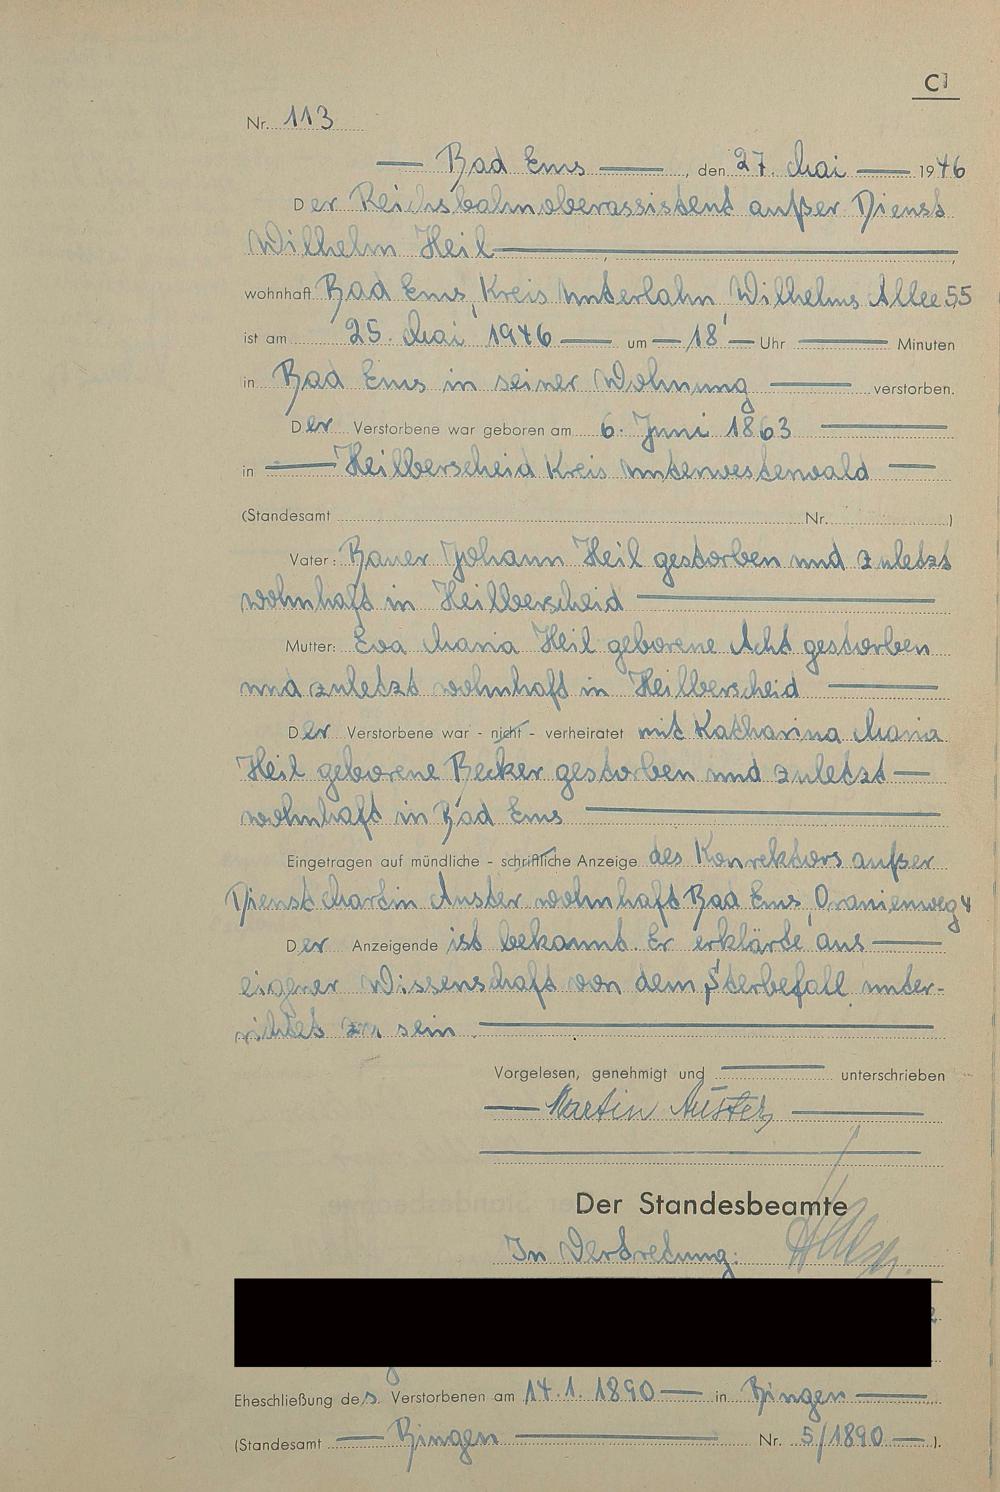 C
Nr. 113
Bad Ems, den 27. Mai 1946
Der Reichsbahnoberassistent außer Dienst
Wilhelm Heil,
wohnhaft Bad Ems, Kreis Unterlahn, Wilhelms Allee 55
ist am 25. Mai 1946 um 18 Uhr Minuten
in Bad Ems in seiner Wohnung verstorben.
Der Verstorbene war geboren am 6. Juni 1863
in Heilberscheid Kreis Unterwesterwald
(Standesamt Nr. )
Vater: Bauer Johann Heil gestorben und zuletzt
wohnhaft in Heilberscheid
Mutter: Eva Maria Heil geborene Acht gestorben
und zuletzt wohnhaft in Heilberscheid
Der Verstorbene war - nicht - verheiratet mit Katharina Maria
Heil geborene Becker gestorben und zuletzt
wohnhaft in Bad Ems
Eingetragen auf mündliche - schriftliche Anzeige des Konrektors außer
Dienst Martin Auster wohnhaft Bad Ems, Oranienweg 4
Der Anzeigende ist bekannt. Er erklärte aus
eigener Wissenschaft von dem Sterbefall unter-
richtet zu sein
Vorgelesen, genehmigt und unterschrieben
Martin Auster
Der Standesbeamte
In Vertretung:
Eheschließung des Verstorbenen am 14.1.1890 in Bingen
(Standesamt Bingen Nr. 5/1890 ).